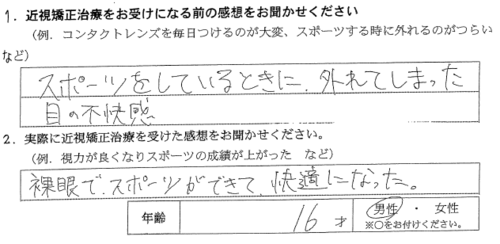 1. 近視矯正治療をお受けになる前の感想をお聞かせください
(例. コンタクトレンズを毎日つけるのが大変、スポーツする時に外れるのがつらい
など)
スポーツをしているときに、外れてしまった
目の不快感
2. 実際に近視矯正治療を受けた感想をお聞かせください。
(例. 視力が良くなりスポーツの成績が上がった など)
裸眼で、スポーツができて、快適になった。
年齢 16才 男性 ・ 女性
※○をお付けください。